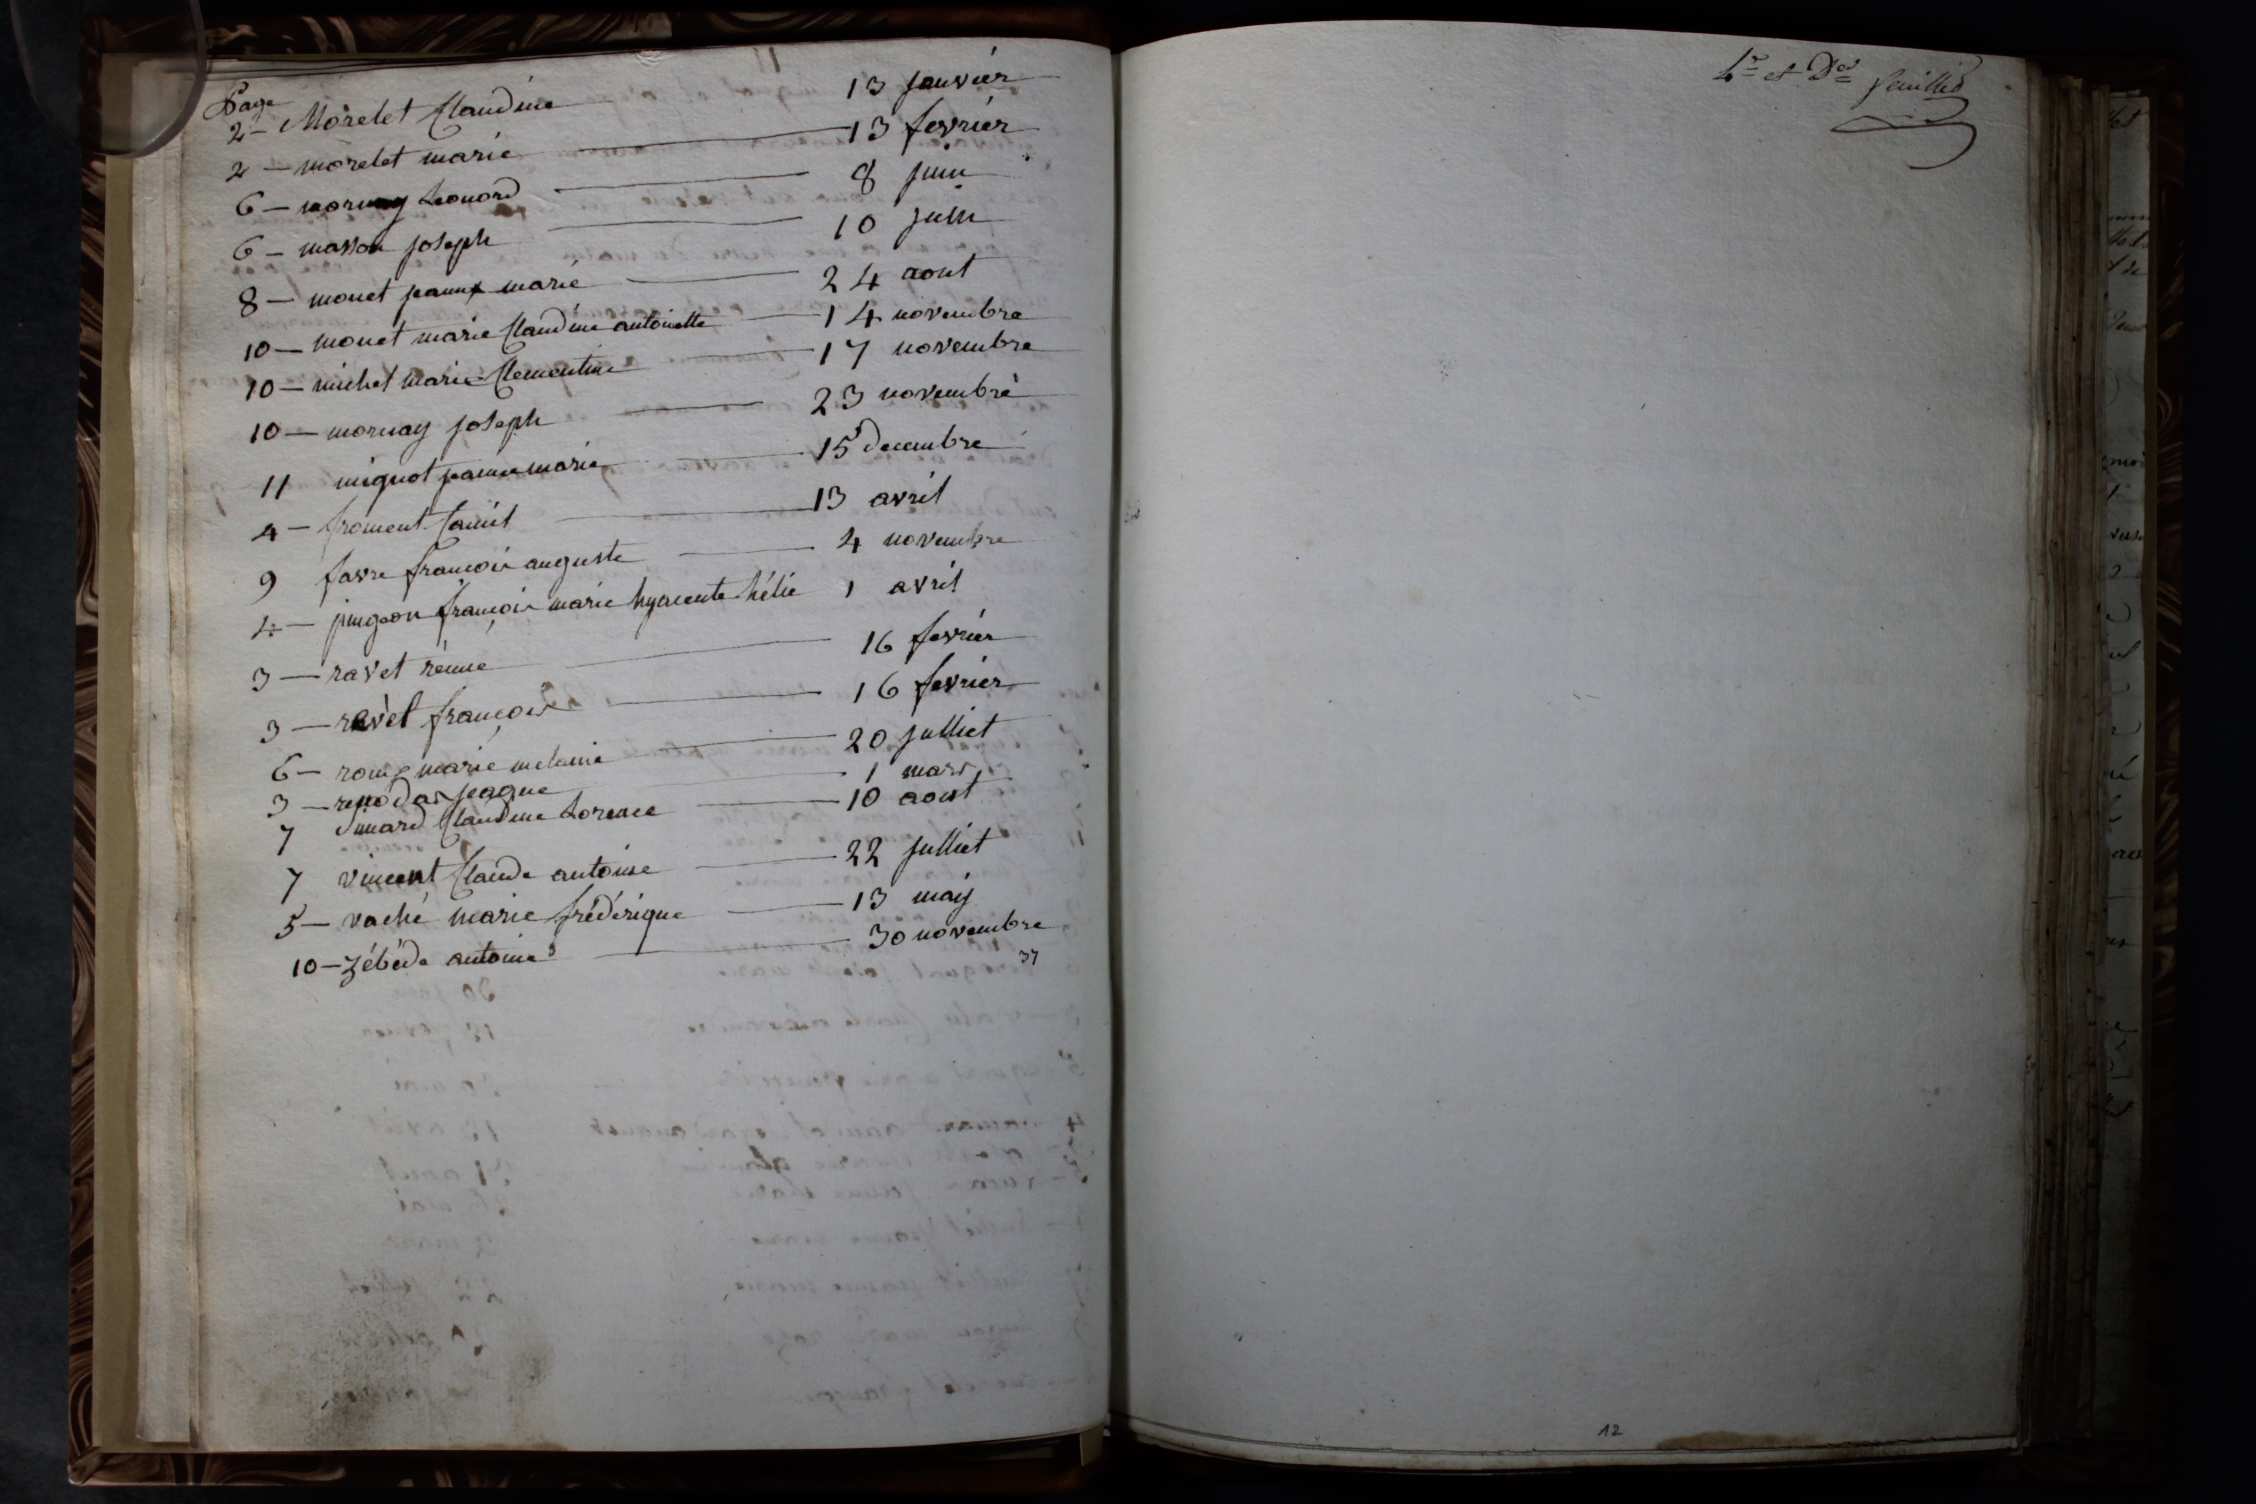 Page
2 — Morelet Claudine 13 janvier
2 — morelet marie — 13 fevrier
6 — mornay Leonord — 8 juin
6 — masson joseph — 10 juin
8 — monet jeanne marie — 24 aout
10 — monet marie Claudine antoinette — 14 novembre
10 — michel marie Clementine — 17 novembre
10 — mornay joseph — 23 novembre
11 mignot jeanne marie — 15 decembre
4 — froment Camil — 13 avril
9 favre francois auguste — 4 novembre
4 — pingeon francois marie hyacente hélie 1 avril
3 — ravet renne — 16 fevrier
3 — ravet francois — 16 fevrier
6 — marie melanie — 20 julliet
3 — jaque — 1 mars
7 Claudine Lorence — 10 aout
7 vincent Claude antoine — 22 julliet
5 — vaché marie frédérique — 13 maij
10 — zébéde antoine — 30 novembre
37
1er et Der feuillet
12